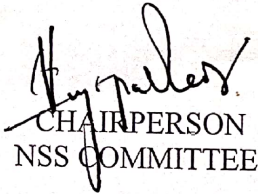 CHAIRPERSON
NSS COMMITTEE